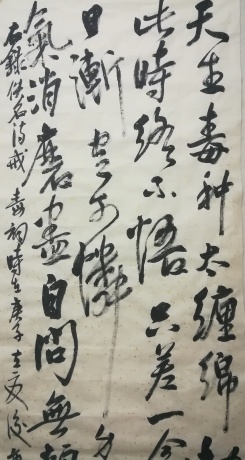 天生毒种太缠绵
此时终不悟只差一
日渐
可怜
气消磨尽自问无
右录佚名诗戒毒词时在庚子立夏后